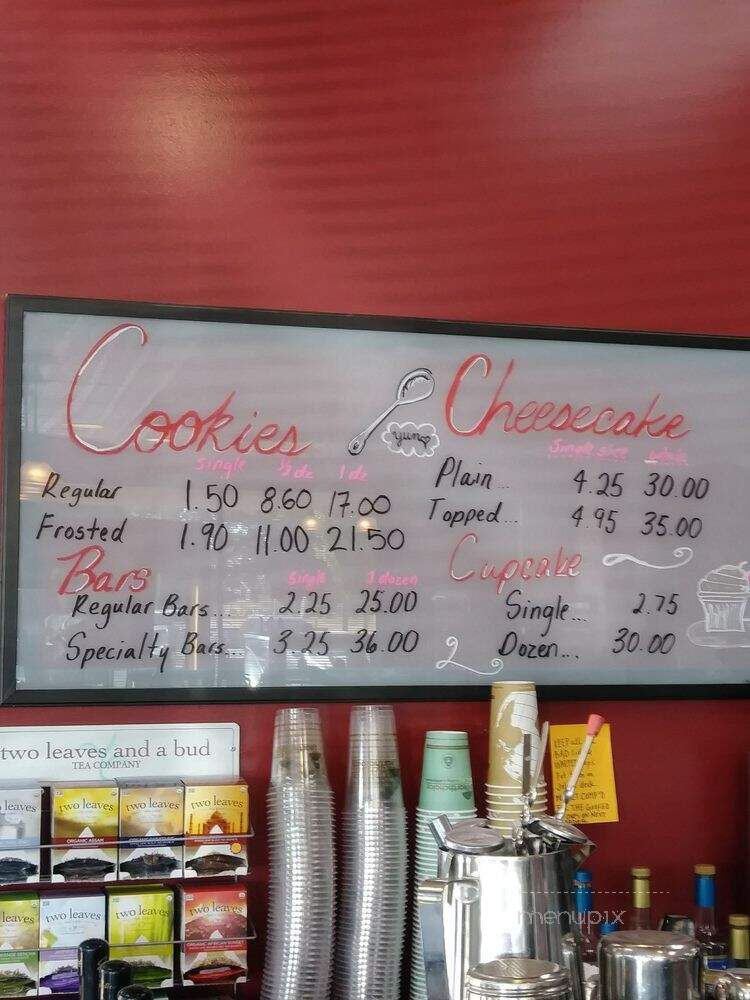 Cookies
yum
single ½ dz 1 dz
Regular 1.50 8.60 17.00
Frosted 1.90 11.00 21.50
Bars
single 1 dozen
Regular Bars... 2.25 25.00
Specialty Bars.... 3.25 36.00
Cheesecake
Single slice whole
Plain... 4.25 30.00
Topped... 4.95 35.00
Cupcake
Single... 2.75
Dozen... 30.00
two leaves and a bud
TEA COMPANY
two leaves
two leaves
two leaves
two leaves
ORGANIC ASSAM
two leaves
two leaves
two leaves
two leaves
menupix